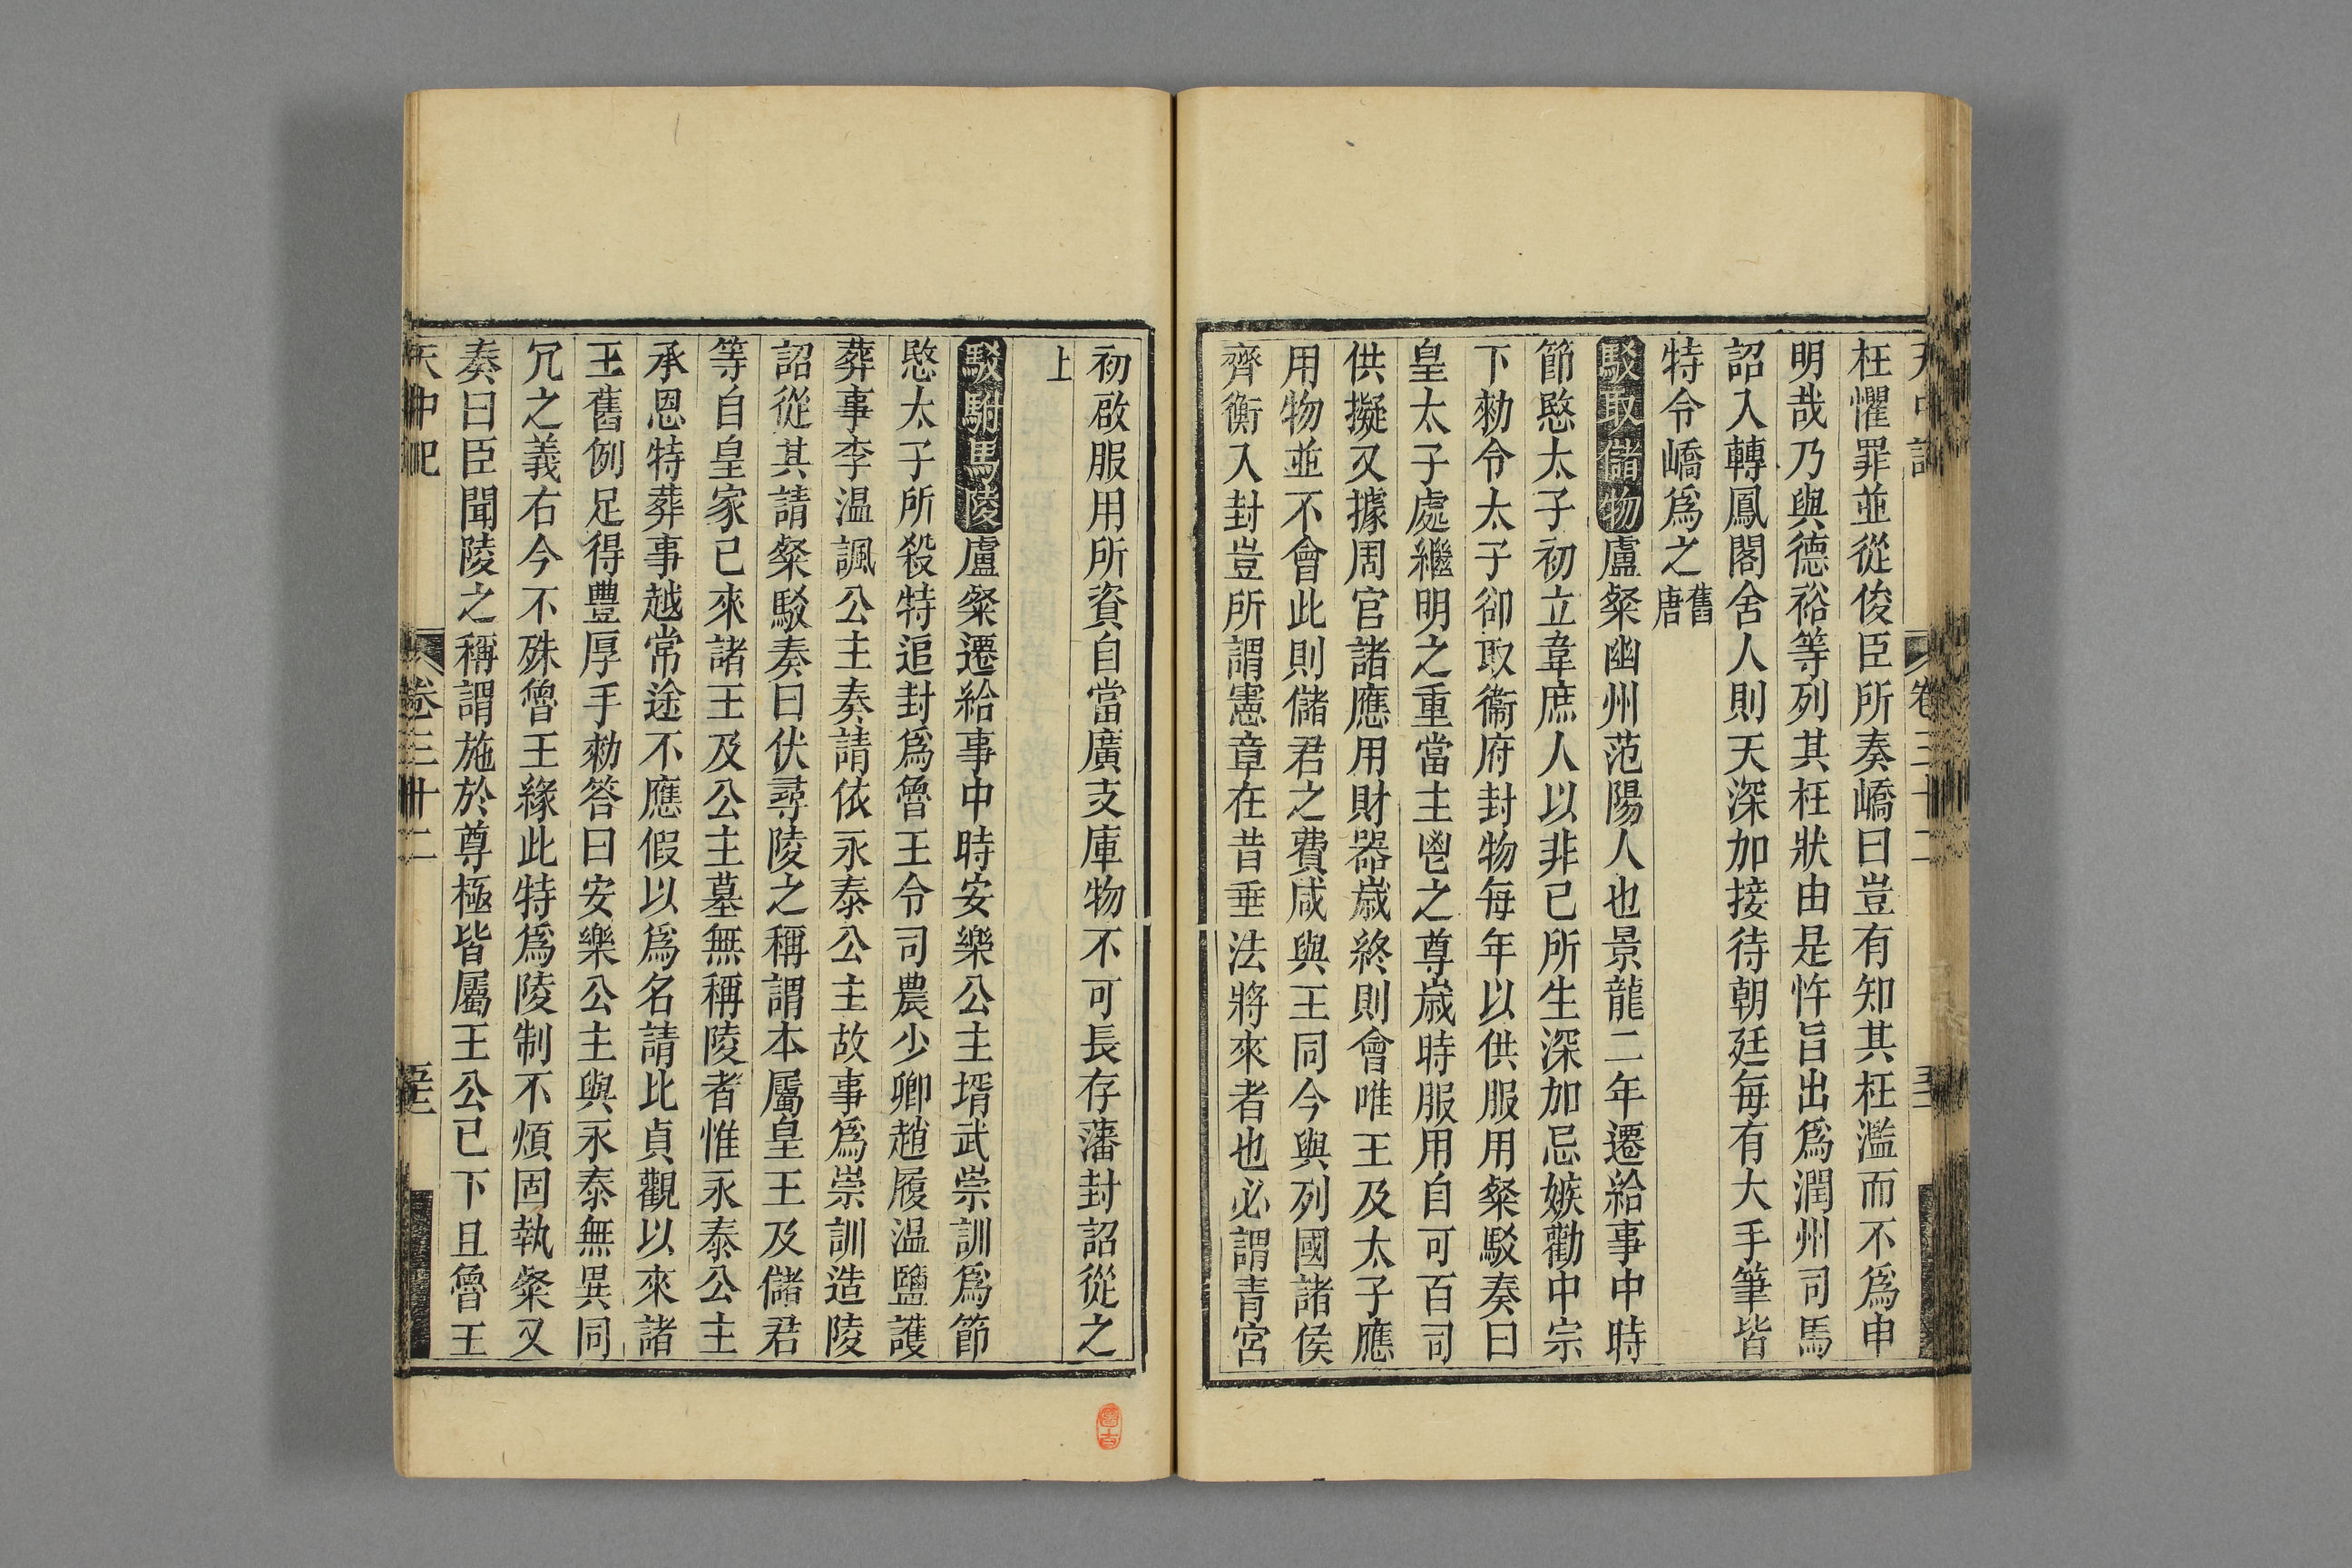 天中記
卷三十二
枉懼罪並從俊臣所奏嶠曰豈有知其枉濫而不爲申
明哉乃與德裕等列其枉狀由是忤旨出爲潤州司馬
詔入轉鳳閣舍人則天深加接待朝廷每有大手筆皆
特令嶠爲之舊唐
駁取儲物盧粲幽州范陽人也景龍二年遷給事中時
節愍太子初立韋庶人以非己所生深加忌嫉勸中宗
下勑令太子卻取衞府封物每年以供服用粲駁奏曰
皇太子處繼明之重當主鬯之尊歳時服用自可百司
供擬又據周官諸應用財器歳終則會唯王及太子應
用物並不會此則儲君之費咸與王同今與列國諸侯
齊衡入封豈所謂憲章在昔垂法將來者也必謂青宮
初啟服用所資自當廣支庫物不可長存藩封詔從之
上
駁駙馬陵盧粲遷給事中時安樂公主壻武崇訓爲節
愍太子所殺特追封爲魯王令司農少卿趙履温鹽護
葬事李温諷公主奏請依永泰公主故事爲崇訓造陵
詔從其請粲駁奏曰伏尋陵之稱謂本屬皇王及儲君
等自皇家已來諸王及公主墓無稱陵者惟永泰公主
承恩特葬事越常途不應假以爲名請比貞觀以來諸
王舊例足得豐厚手勑答曰安樂公主與永泰無異同
冗之義右今不殊魯王緣此特爲陵制不煩固執粲又
奏曰臣聞陵之稱謂施於尊極皆屬王公已下且魯王
天中記
卷三十二